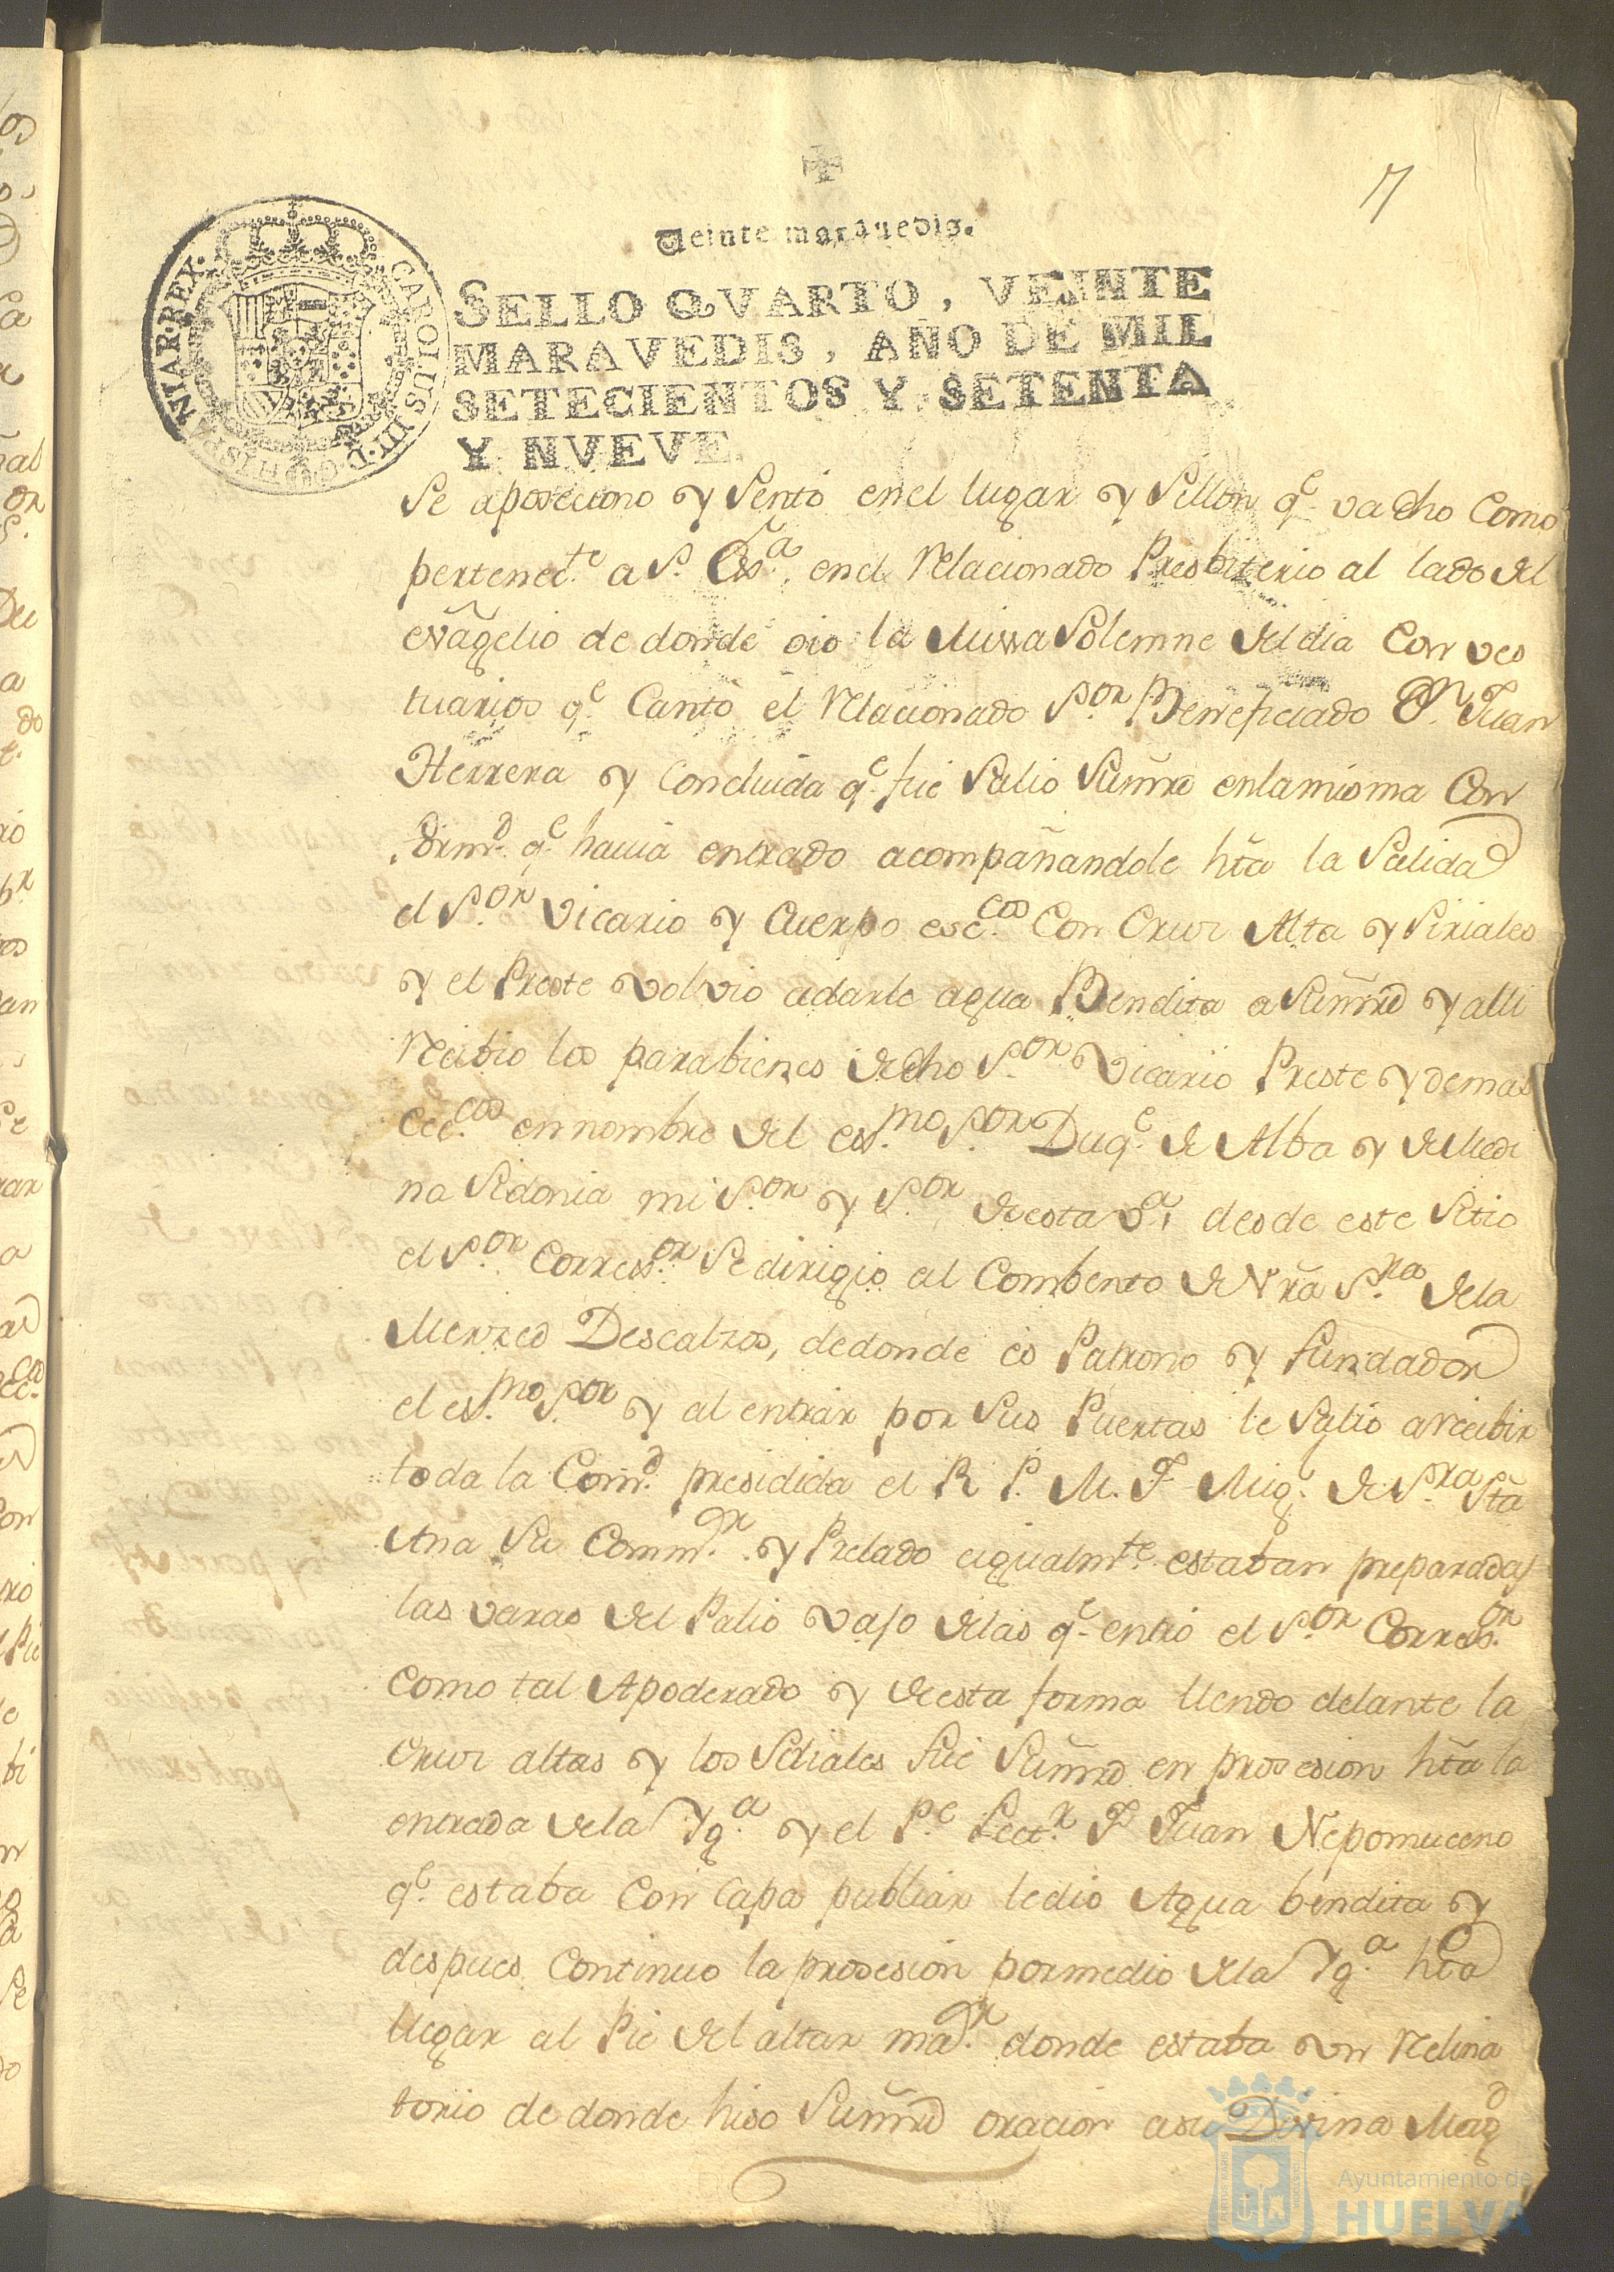 7
Veinte maravedis.
SELLO QVARTO, VEINTE
MARAVEDIS, AÑO DE MIL
SETECIENTOS Y SETENTA
Y NVEVE.
CAROLUS III D G HISPANIAR REX
Se aposeciono y Sento en el lugar y Sillon q.e va dho como
pertenec.te a S. Exs.a, en el relacionado Presbiterio al lado del
evãgelio de donde oio la Missa Solemne del dia con ves
tuarios q.e Cantò el relacionado S.or Beneficiado D.n Juan
Herrera y concluida q.e fue Salio Sumrd en la misma con
formd. q.e havia entrado acompañandole hta la Salida
el S.or Vicario y Cuerpo esc.cos con Cruz Alta y Siriales
y el Preste volvio a darle agua Bendita a Sumrd y alli
recibio los parabienes de dho S.or Vicario Preste y demas
Ecc.cos en nombre del es.mo S.or Duq.e de Alba y de Medi
na Sidonia mi S.or y S.or de esta v.a, desde este Sitio
el S.or Corres.or Se dirigio al Combento de Nra S.ra de la
Merzed Descalzos, de donde es Patrono y fundador
el es.mo S.or y al entrar por Sus Puertas le Salio a recibir
toda la Com.d presidida el R P. M. F Mig. de S.ra Sta
Ana Su Comm.or y Prelado igualm.te estaban preparadas
las varas del Palio vajo de las q.e entro el S.or Corres.or
como tal Apoderado y de esta forma llendo delante la
Cruz altas y los Seliales fue Sumrd en prosesion hta la
entrada de la Yg.a y el P.e Lect.r F Juan Nepomuceno
q.e estaba con Capa publiar le dio Agua bendita y
despues continuo la prosesion por medio de la Yg.a hta
llegar al Pie del altar ma.or donde estaba un relina
torio de donde hiso Sumrd oracion a su Divina Magd
Ayuntamiento de
HUELVA